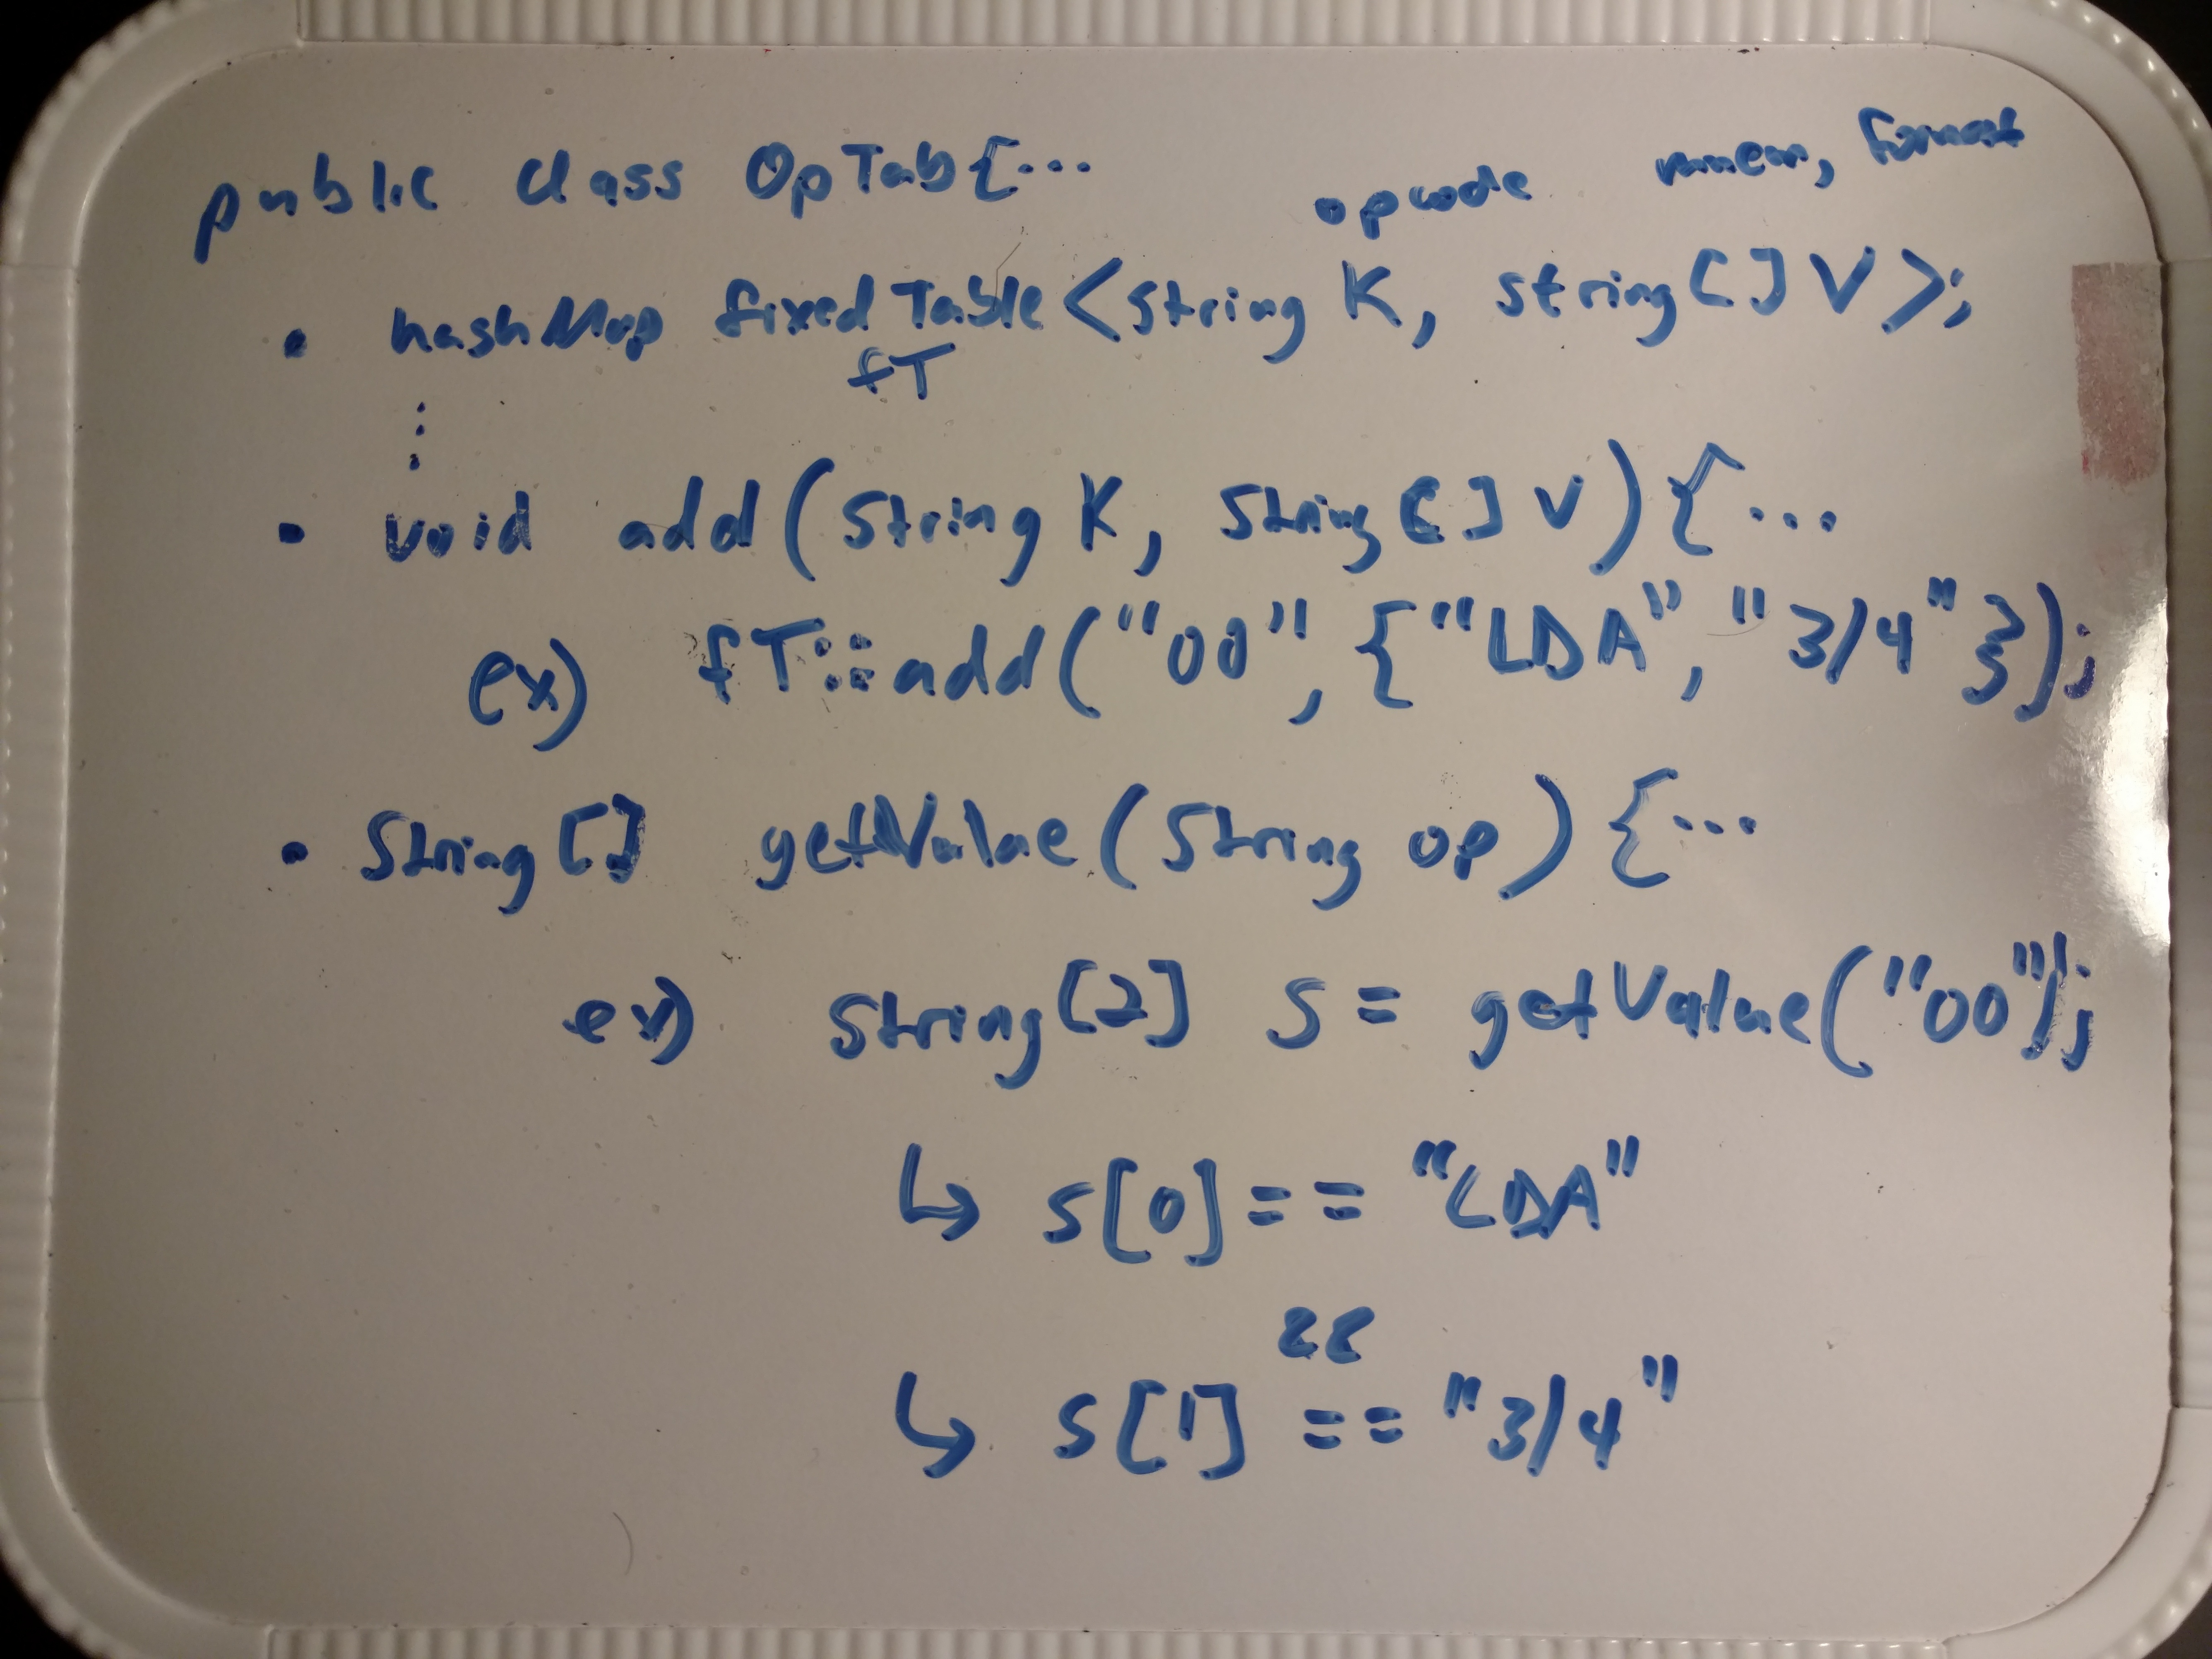 public class OpTab{...
opcode mnem, format
• hashMap fixedTable<String K, String[] V>;
fT
• void add(String K, String[] V){...
ex) fT::add("00", {"LDA", "3/4"});
• String[] getValue(String op){...
ex) String[2] S = getValue("00");
↳ S[0] == "LDA"
&&
↳ S[1] == "3/4"